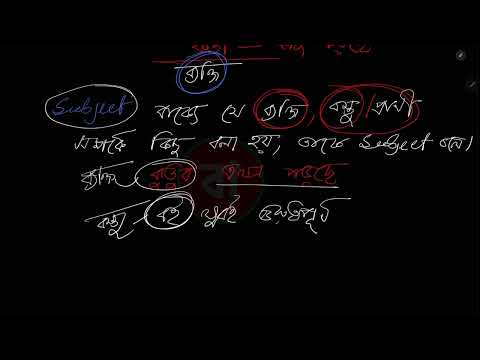 ব্যক্তি
Subject বাক্যে যে ব্যক্তি, বস্তু/প্রাণী
সম্পর্কে কিছু বলা হয়, তাকে Subject বলে।
ব্যক্তি পড়ছে
বস্তু বই খুবই গুরুত্বপূর্ণ